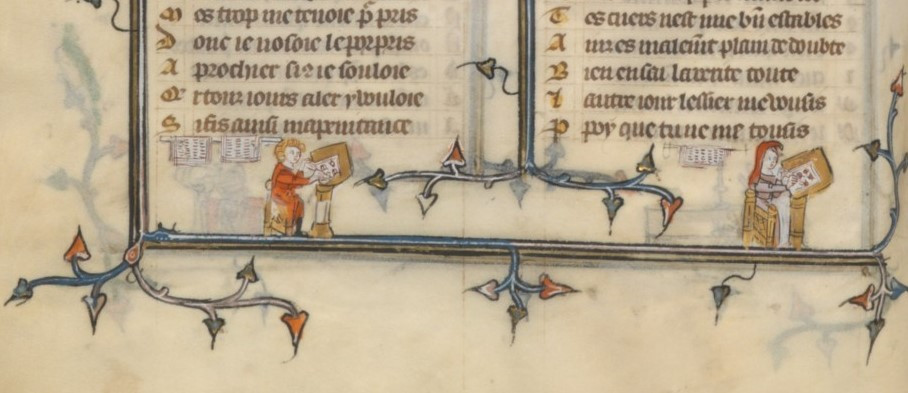 Mes trop me tenoie p̃ pris
Donc ie nosoie le porpris
Aprochier si ꝯ ie souloie
Et touz iours aler y vouloie
Si fis ainsi ma penitance
Tes cuers nest mie bñ estables
Ainz es malem̃t plain de doubte
Bien en sai la verite toute
Lautre iour lessier me vousis
Ppoy que tu ne me tousis